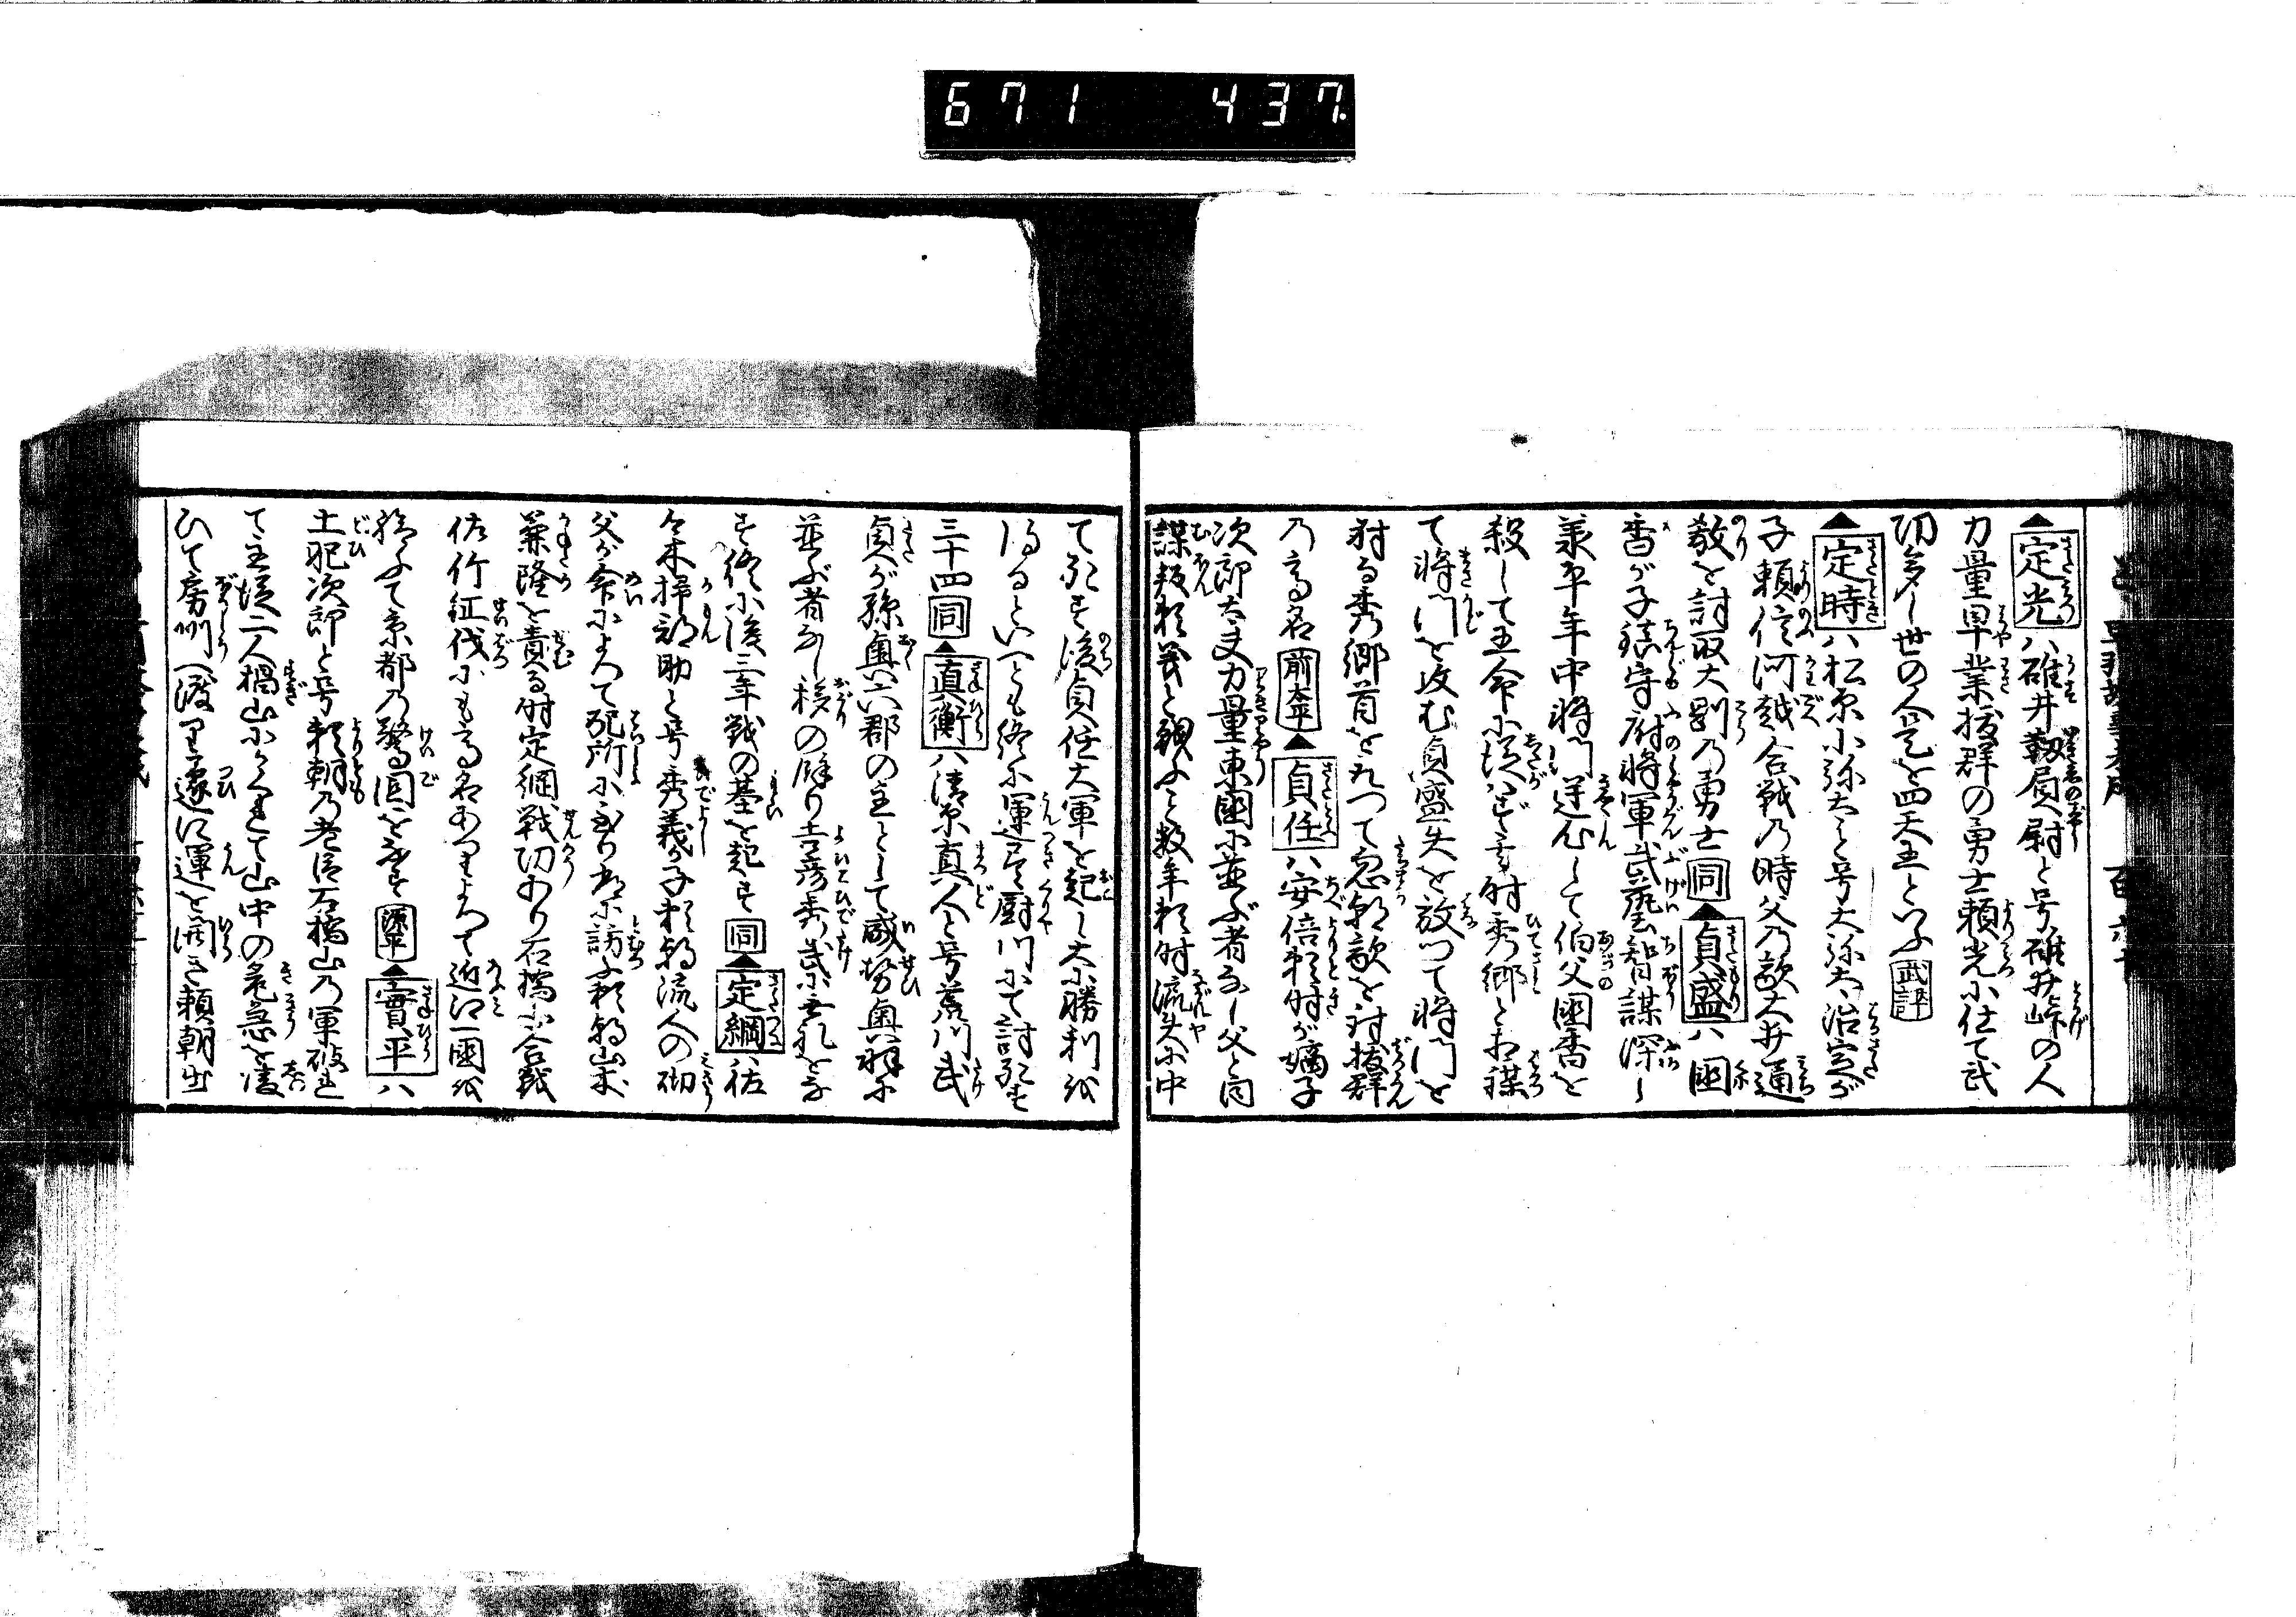 671 437
▲定光ハ碓井靱屓尉と号碓井峠の人
力量早業抜群の勇士頼光小仕て武
功多し世の人是を四天王といふ 武評
▲定時ハ松原小弥太と号大弥太治定が
子頼信河越合戦乃時父乃敵大井通
教を討取大剛乃勇士 同 ▲貞盛ハ國
香が子鎮守府将軍武藝智謀深し
兼平年中将門逆心して伯父國香を
殺して王命小従ハず 時秀郷とお謀
て将門を攻む貞盛矢を放つて将門を
射る秀郷首をれつて 敵を討抜群
乃高名 前太平 ▲貞任ハ安倍頼時が嫡子
次郎太夫力量東國小並ぶ者なし父と同
謀叛頼義と戦ふと数年頼時流矢小中
て死す後貞任大軍を起し大小勝利を
得るといへとも終小運尽厨川小て討死す
三十四 同 ▲真衡ハ清原真人と号荒川武
貞が孫奥六郡の主として威勢奥羽小
並ぶ者なし 移の餘り吉彦秀武小無礼をな
す終小後三年戦の基を起す 同 ▲定綱ハ佐
々木掃部助と号秀義が子頼朝流人の砌
父が命小よつて配所小至り 訪ふ頼朝山木
兼隆を責る時定綱戦功あり石橋小合戦
佐竹征伐小も高名あつよつて近江一國を
給ふて京都乃警固をなす 源平 ▲實平ハ
土肥次郎と号頼朝乃老臣石橋山乃軍破れ
て主従二人椙山小かくれて山中の危急を凌
ひて房州へ渡り遂に運を開き頼朝出